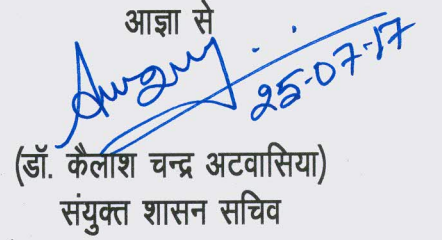 आज्ञा से
25-07-17
(डॉ. कैलाश चन्द्र अटवासिया)
संयुक्त शासन सचिव